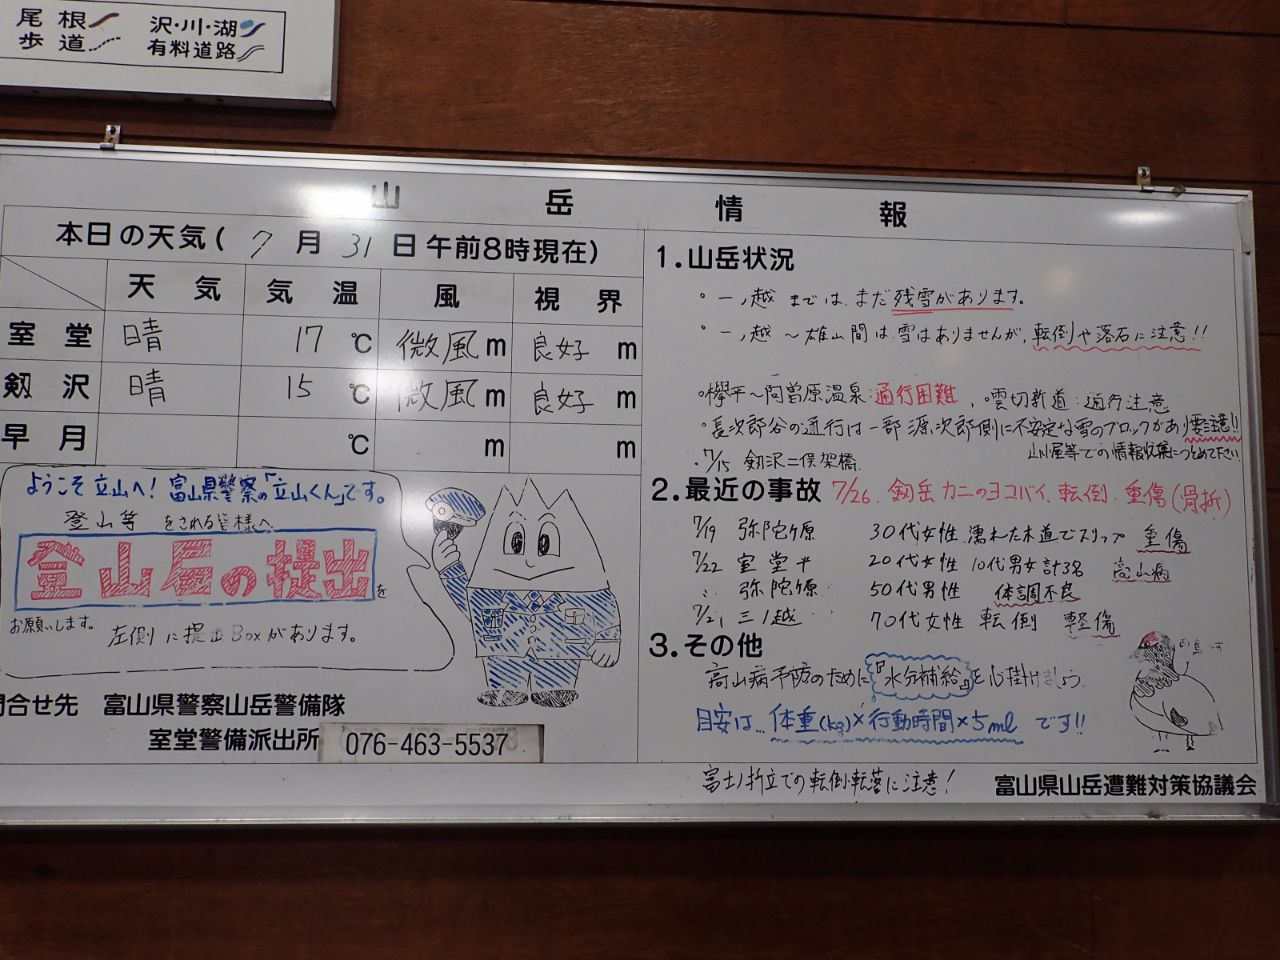 尾根 沢・川・湖
歩道 有料道路
山岳情報
本日の天気(7月31日午前8時現在)
天気 気温 風 視界
室堂 晴 17℃ 微風m 良好m
剱沢 晴 15℃ 微風m 良好m
早月 ℃ m m
ようこそ立山へ!富山県警察の「立山くん」です。
登山等をされる皆様へ
登山届の提出を
お願いします。
左側に提出Boxがあります。
合せ先 富山県警察山岳警備隊
室堂警備派出所 076-463-5537
1.山岳状況
・一ノ越までは、まだ残雪があります。
・一ノ越〜雄山間は雪はありませんが、転倒や落石に注意!!
・欅平〜阿曽原温泉:通行困難、・雲切新道:通行注意
・長次郎谷の通行は一部源次郎側に不安定な雪のブロックがあり要注意!!
山小屋等での情報収集につとめて下さい
・7/15 剱沢二俣架橋
2.最近の事故 7/26 剱岳カニのヨコバイ、転倒 重傷(骨折)
7/19 弥陀ヶ原 30代女性 濡れた木道でスリップ 重傷
7/22 室堂平 20代女性 10代男女計3名 高山病
〃 弥陀ヶ原 50代男性 体調不良
三ノ越 70代女性 転倒 軽傷
3.その他
高山病予防のために『水分補給』を心掛けましょう
目安は…体重(kg)×行動時間×5ml です!!
富士ノ折立での転倒・転落に注意!
富山県山岳遭難対策協議会